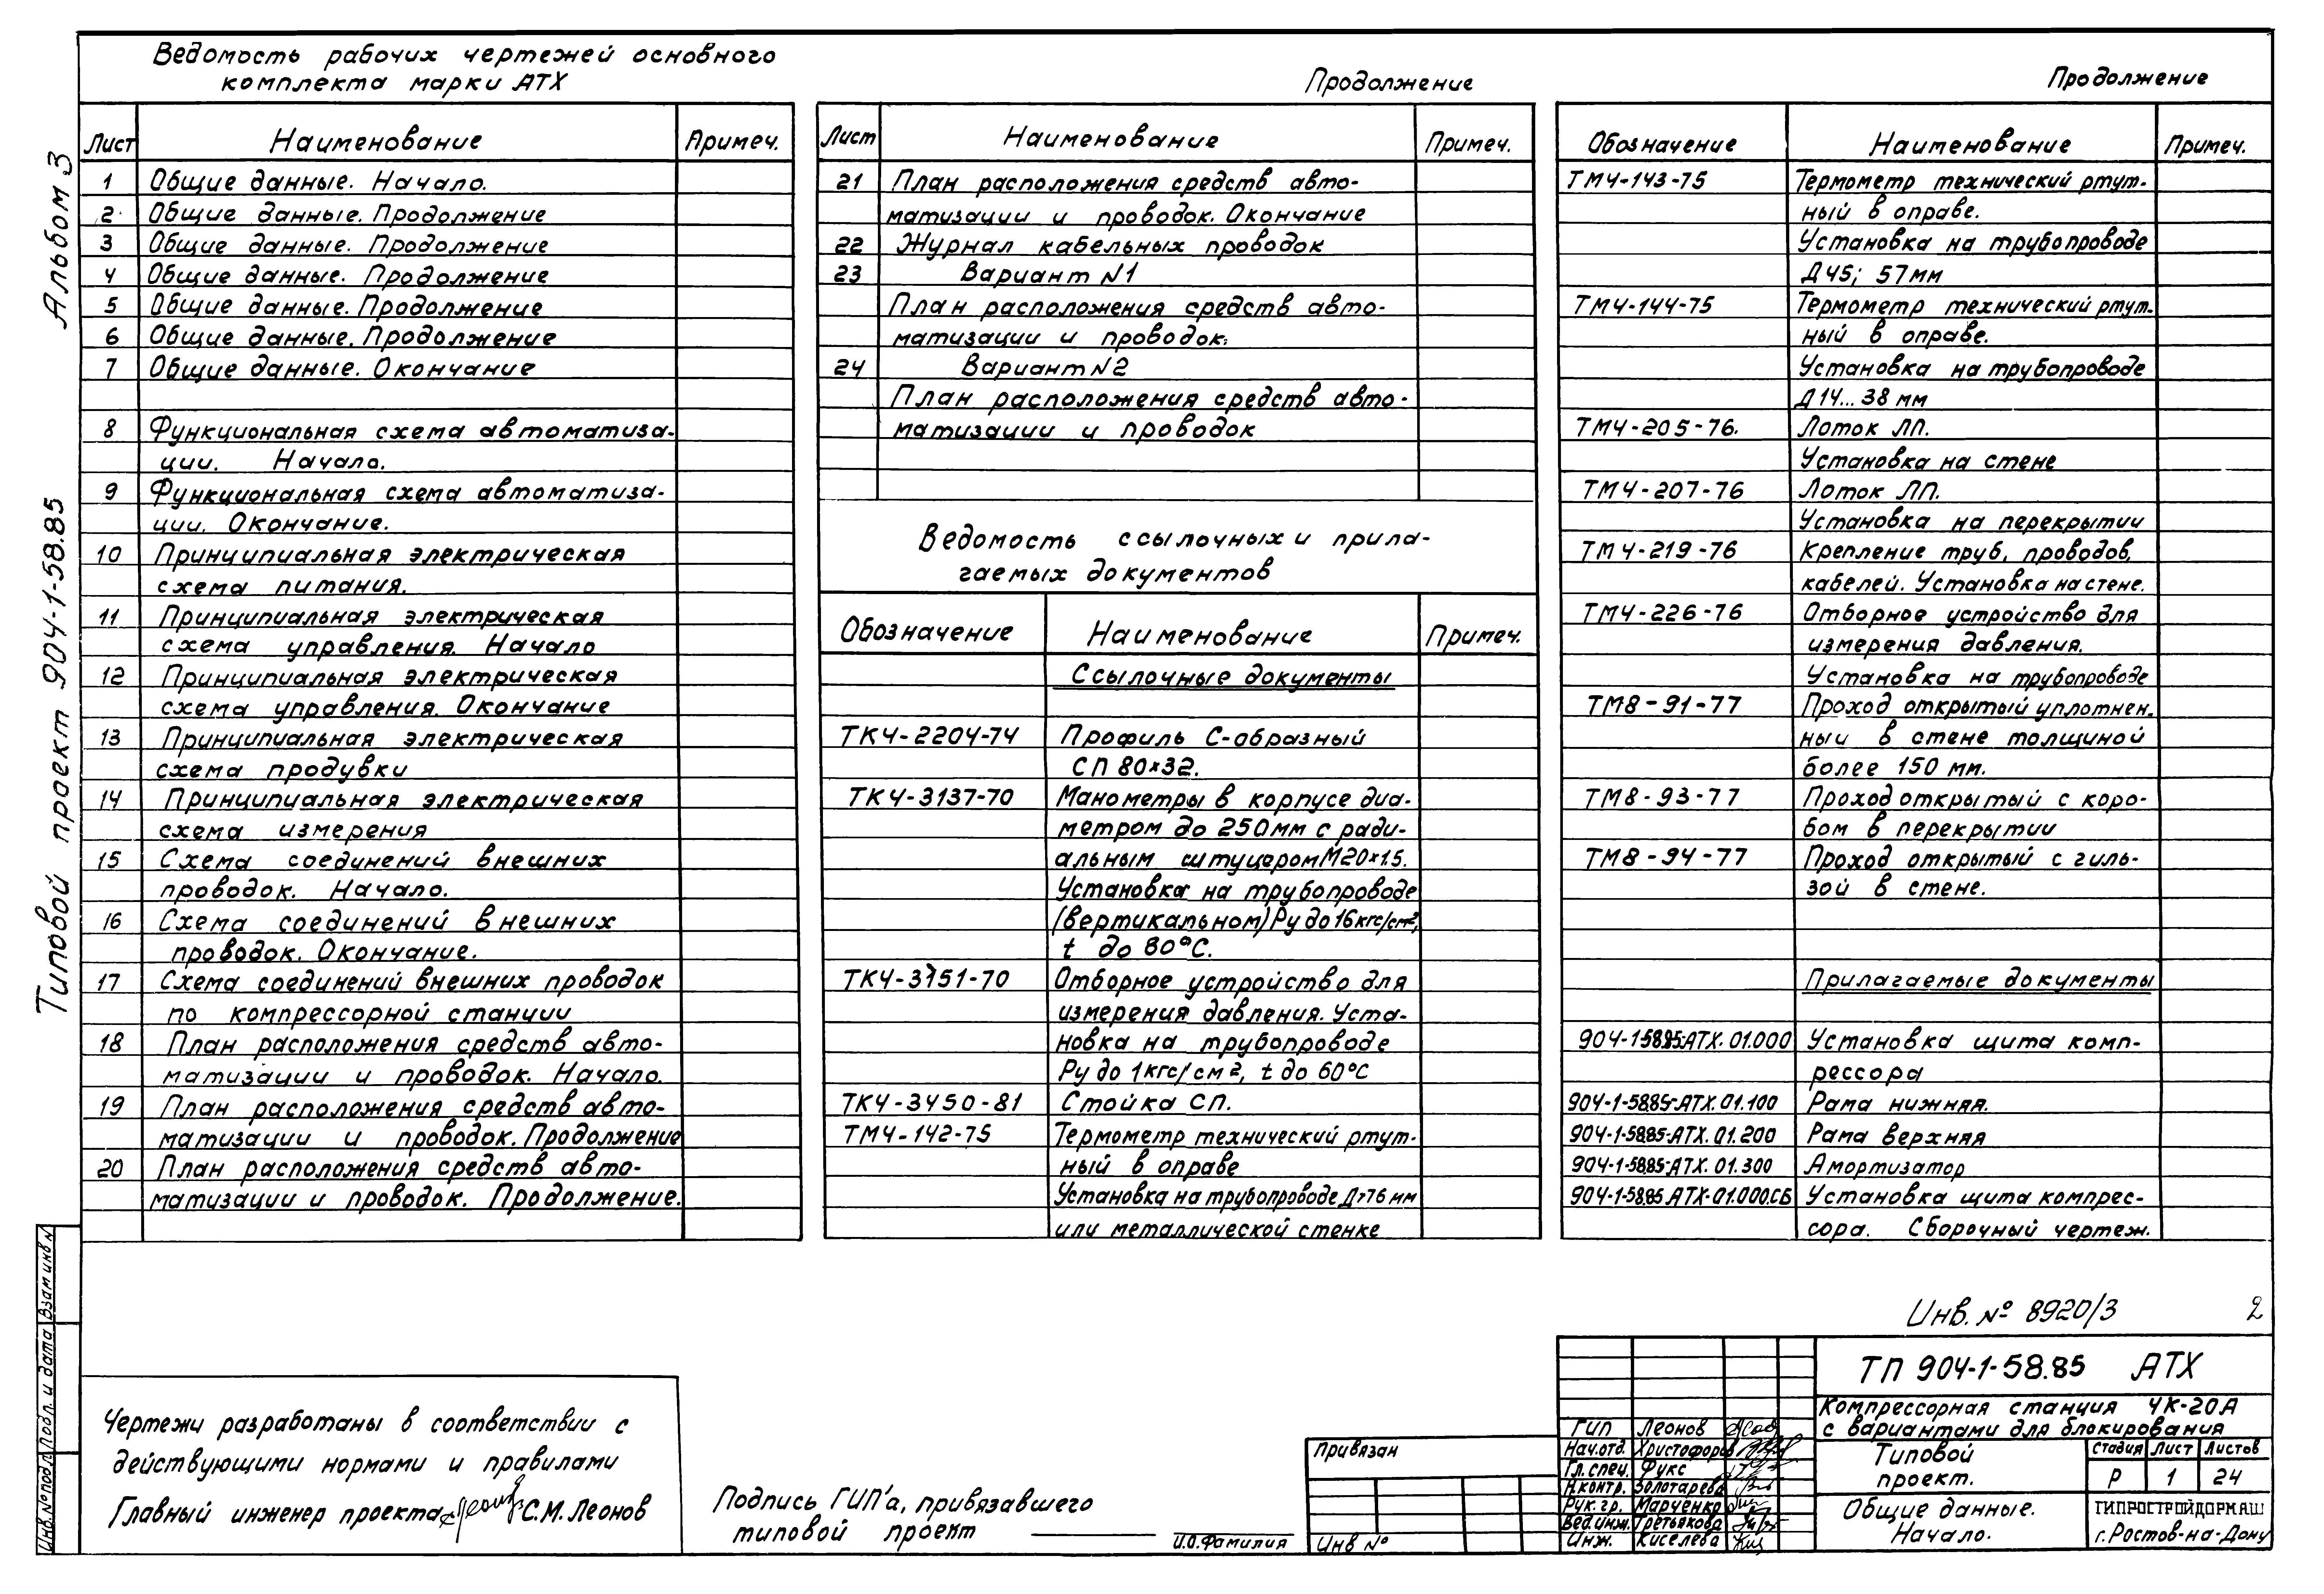 Альбом 3
Типовой проект 904-1-58.85
Ведомость рабочих чертежей основного
комплекта марки АТХ
Лист Наименование Примеч.
1 Общие данные. Начало.
2 Общие данные. Продолжение
3 Общие данные. Продолжение
4 Общие данные. Продолжение
5 Общие данные. Продолжение
6 Общие данные. Продолжение
7 Общие данные. Окончание
8 Функциональная схема автоматиза-
ции. Начало.
9 Функциональная схема автоматиза-
ции. Окончание.
10 Принципиальная электрическая
схема питания.
11 Принципиальная электрическая
схема управления. Начало
12 Принципиальная электрическая
схема управления. Окончание
13 Принципиальная электрическая
схема продувки
14 Принципиальная электрическая
схема измерения
15 Схема соединений внешних
проводок. Начало.
16 Схема соединений внешних
проводок. Окончание.
17 Схема соединений внешних проводок
по компрессорной станции
18 План расположения средств авто-
матизации и проводок. Начало.
19 План расположения средств авто-
матизации и проводок. Продолжение
20 План расположения средств авто-
матизации и проводок. Продолжение.
Продолжение
Лист Наименование Примеч.
21 План расположения средств авто-
матизации и проводок. Окончание
22 Журнал кабельных проводок
23 Вариант N1
План расположения средств авто-
матизации и проводок.
24 Вариант N2
План расположения средств авто-
матизации и проводок
Ведомость ссылочных и прила-
гаемых документов
Обозначение Наименование Примеч.
Ссылочные документы
ТК4-2204-74 Профиль С-образный
СП 80×32.
ТК4-3137-70 Манометры в корпусе диа-
метром до 250мм с ради-
альным штуцером М20×1.5.
Установка на трубопроводе
(вертикальном) Ру до 16 кгс/см²,
t до 80°С.
ТК4-3151-70 Отборное устройство для
измерения давления. Уста-
новка на трубопроводе
Ру до 1 кгс/см², t до 60°С
ТК4-3450-81 Стойка СП.
ТМ4-142-75 Термометр технический ртут-
ный в оправе
Установка на трубопроводе Д>76 мм
или металлической стенке
Продолжение
Обозначение Наименование Примеч.
ТМ4-143-75 Термометр технический ртут-
ный в оправе.
Установка на трубопроводе
Д 45; 57мм
ТМ4-144-75 Термометр технический ртут-
ный в оправе.
Установка на трубопроводе
Д 14...38 мм
ТМ4-205-76. Лоток ЛП.
Установка на стене
ТМ4-207-76 Лоток ЛП.
Установка на перекрытии
ТМ4-219-76 Крепление труб, проводов,
кабелей. Установка на стене.
ТМ4-226-76 Отборное устройство для
измерения давления.
Установка на трубопроводе
ТМ8-91-77 Проход открытый уплотнен.
ный в стене толщиной
более 150 мм.
ТМ8-93-77 Проход открытый с коро-
бом в перекрытии
ТМ8-94-77 Проход открытый с гиль-
зой в стене.
Прилагаемые документы
904-1-58.85-АТХ. 01.000 Установка щита комп-
рессора
904-1-58.85-АТХ. 01.100 Рама нижняя.
904-1-58.85-АТХ. 01.200 Рама верхняя
904-1-58.85-АТХ. 01.300 Амортизатор
904-1-58.85 АТХ-01.000.СБ Установка щита компрес-
сора. Сборочный чертеж.
Инв. № 8920/3 2
Чертежи разработаны в соответствии с
действующими нормами и правилами
Главный инженер проекта С.М. Леонов
Подпись ГИП'а, привязавшего
типовой проект
И.О. Фамилия
Привязан
Инв №
ГИП Леонов
Нач.отд. Христофоров
Гл.спец. Фукс
Н.контр. Золотарева
Рук. гр. Марченко
Вед.инж. Третьякова
Инж. Киселева
ТП 904-1-58.85 АТХ
Компрессорная станция 4К-20А
с вариантами для блокирования
Типовой
проект.
Стадия Лист Листов
Р 1 24
Общие данные.
Начало.
ГИПРОСТРОЙДОРМАШ
г. Ростов-на-Дону
Инв.№подл. Подп. и дата Взам инв N